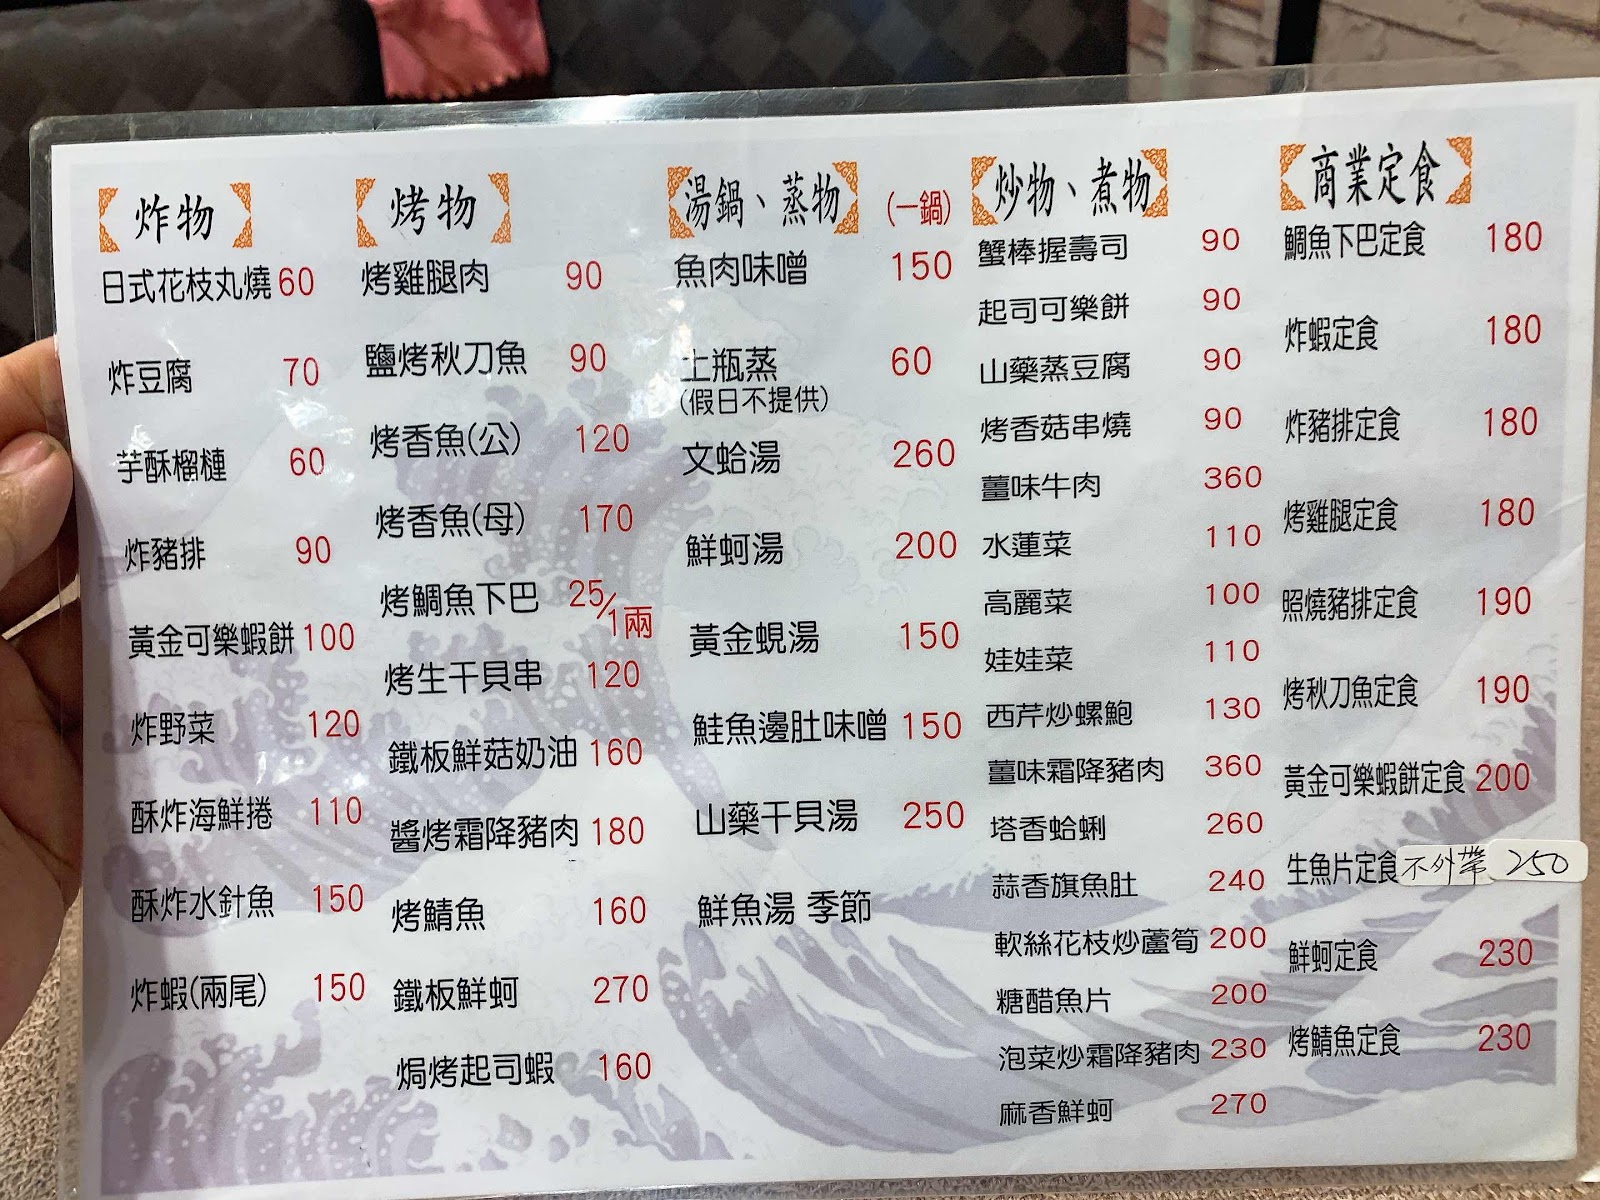 炸物
日式花枝丸燒 60
炸豆腐 70
芋酥榴槤 60
炸豬排 90
黃金可樂蝦餅 100
炸野菜 120
酥炸海鮮捲 110
酥炸水針魚 150
炸蝦(兩尾) 150
烤物
烤雞腿肉 90
鹽烤秋刀魚 90
烤香魚(公) 120
烤香魚(母) 170
烤鯛魚下巴 25/1兩
烤生干貝串 120
鐵板鮮菇奶油 160
醬烤霜降豬肉 180
烤鯖魚 160
鐵板鮮蚵 270
焗烤起司蝦 160
湯鍋、蒸物 (一鍋)
魚肉味噌 150
土瓶蒸 60
(假日不提供)
文蛤湯 260
鮮蚵湯 200
黃金蜆湯 150
鮭魚邊肚味噌 150
山藥干貝湯 250
鮮魚湯 季節
炒物、煮物
蟹棒握壽司 90
起司可樂餅 90
山藥蒸豆腐 90
烤香菇串燒 90
薑味牛肉 360
水蓮菜 110
高麗菜 100
娃娃菜 110
西芹炒螺鮑 130
薑味霜降豬肉 360
塔香蛤蜊 260
蒜香旗魚肚 240
軟絲花枝炒蘆筍 200
糖醋魚片 200
泡菜炒霜降豬肉 230
麻香鮮蚵 270
商業定食
鯛魚下巴定食 180
炸蝦定食 180
炸豬排定食 180
烤雞腿定食 180
照燒豬排定食 190
烤秋刀魚定食 190
黃金可樂蝦餅定食 200
生魚片定食 不外帶 250
鮮蚵定食 230
烤鯖魚定食 230